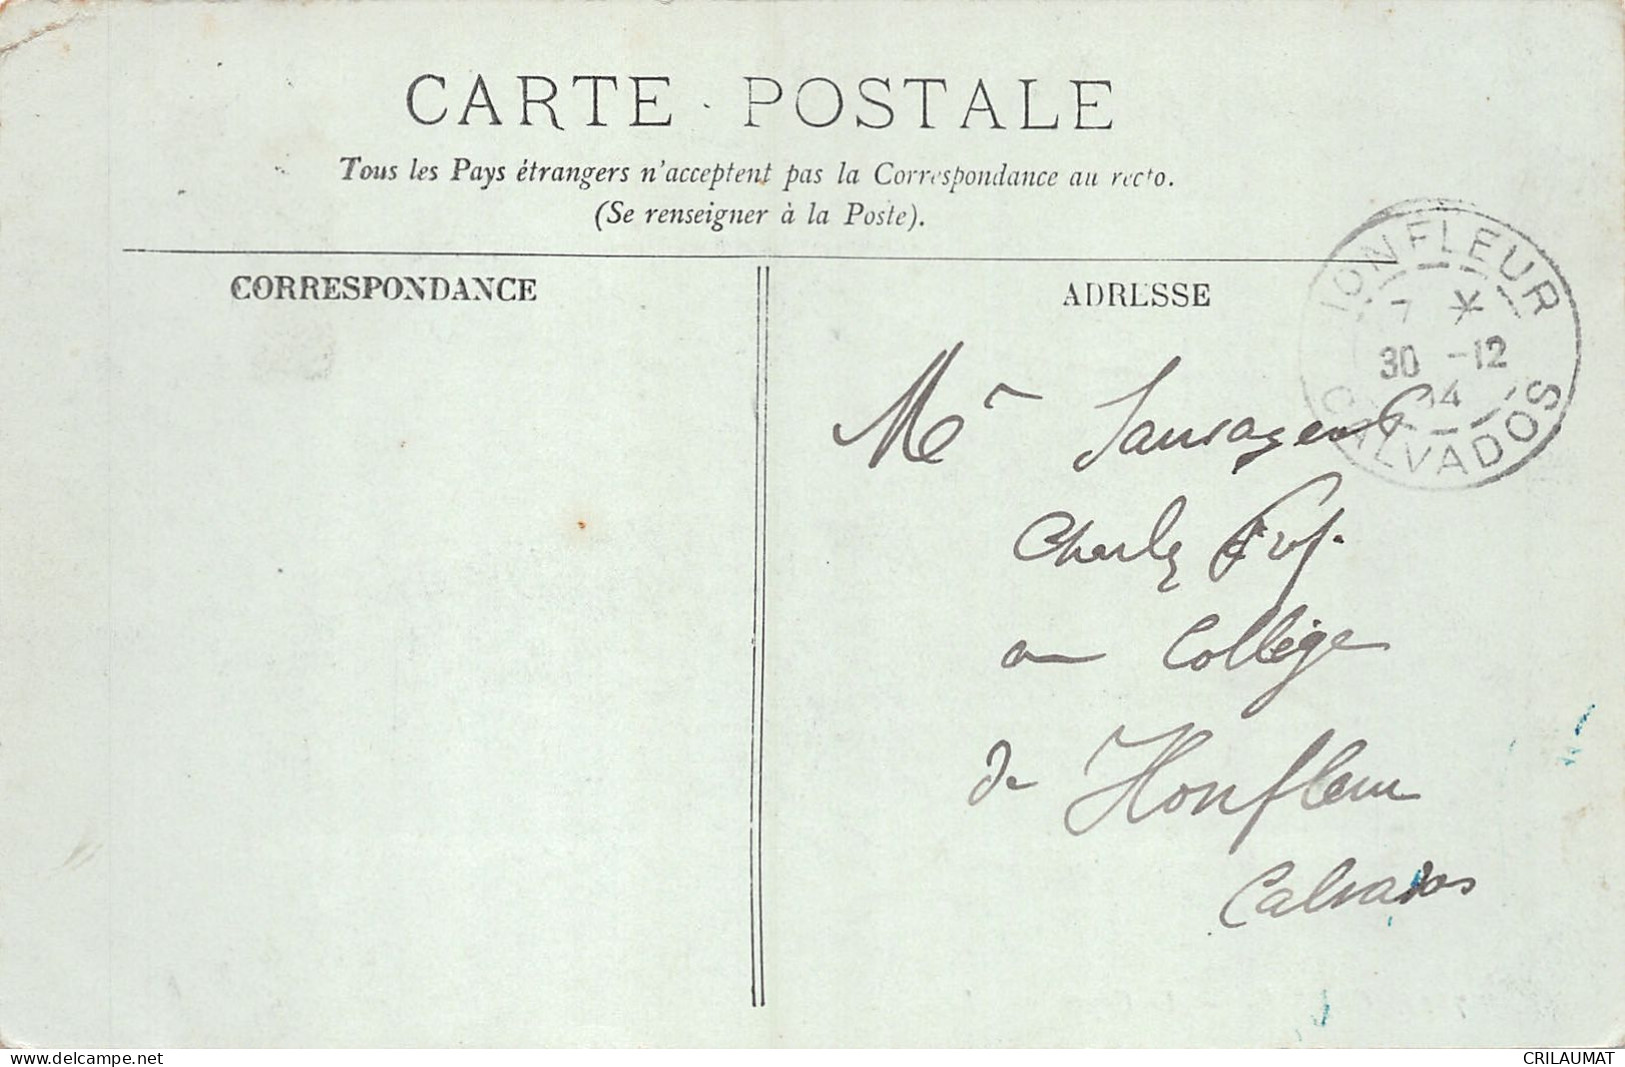 CARTE POSTALE
Tous les Pays étrangers n'acceptent pas la Correspondance au recto.
(Se renseigner à la Poste).
CORRESPONDANCE
ADRESSE
HONFLEUR
7 *
30 -12
04
CALVADOS
Mr
Charly Prof.
au Collège
de Honfleur
Calvados
www.delcampe.net
CRILAUMAT